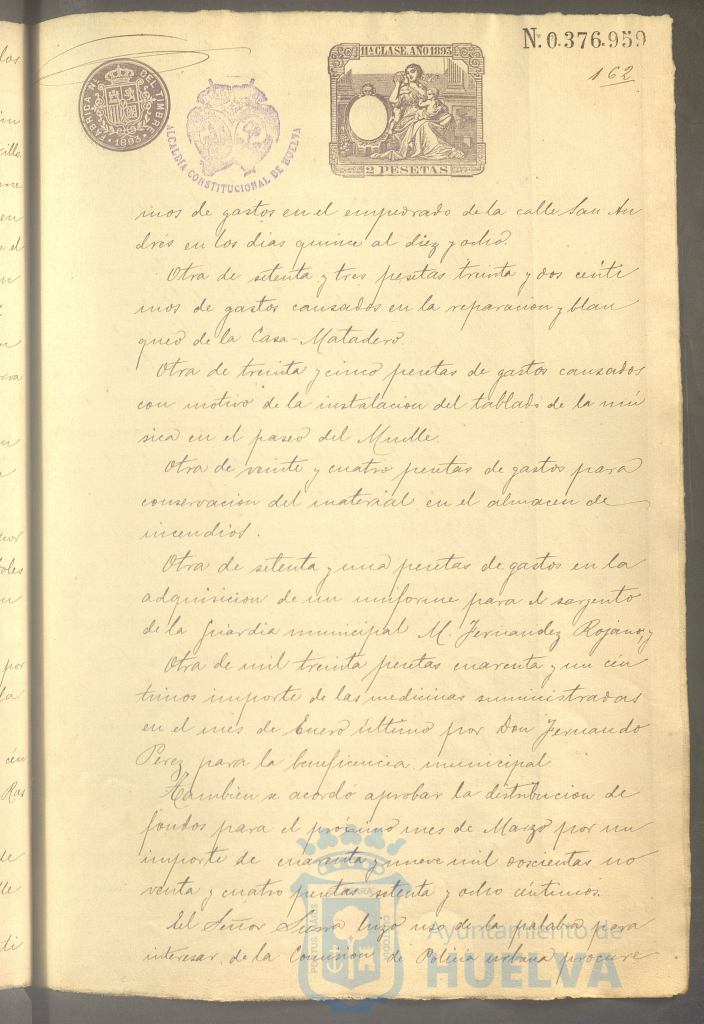 Nº 0.376.959
162
FÁBRICA Nl. DEL TIMBRE
1893
ALCALDIA CONSTITUCIONAL DE HUELVA
11ª CLASE. AÑO 1893
2 PESETAS
mos de gastos en el empedrado de la calle San An
drés en los dias quince al diez y ocho.
Otra de setenta y tres pesetas treinta y dos centi
mos de gastos causados en la reparacion y blan
queo de la Casa-Matadero.
Otra de treinta y cinco pesetas de gastos causados
con motivo de la instalacion del tablado de la mú
sica en el paseo del Muelle.
Otra de veinte y cuatro pesetas de gastos para
conservacion del material en el almacen de
incendios.
Otra de setenta y una pesetas de gastos en la
adquisicion de un uniforme para el sargento
de la Guardia municipal M. Fernandez Rojano, y
Otra de mil treinta pesetas cuarenta y un cén
timos importe de las medicinas suministradas
en el mes de Enero último por Don Fernando
Perez para la beneficencia municipal.
Tambien se acordó aprobar la distribucion de
fondos para el próximo mes de Marzo por un
importe de cuarenta y nueve mil doscientas no
venta y cuatro pesetas setenta y ocho céntimos.
El Señor Sierra hizo uso de la palabra para
interesar de la Comision de Policia urbana procure
Ayuntamiento de
HUELVA